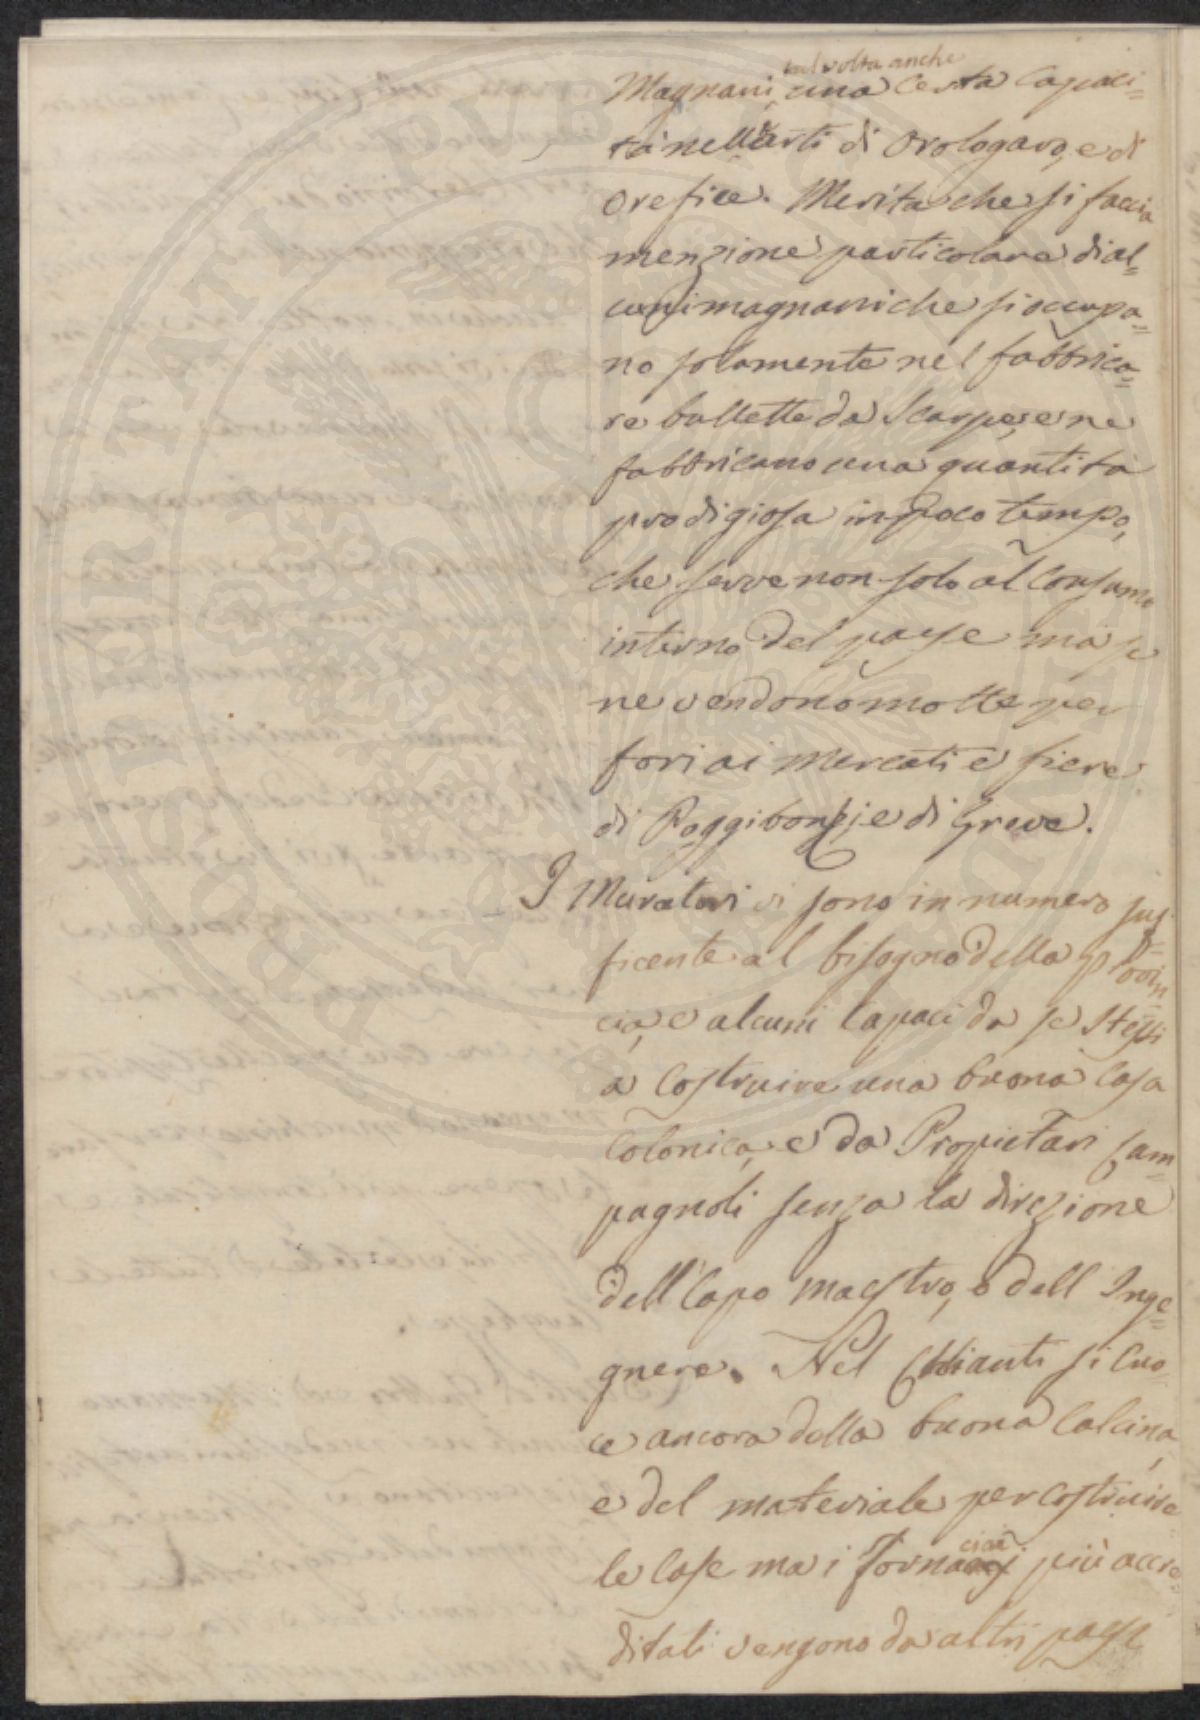 talvolta anche
Magnani, una certa Capaci=
tà nell'arti di Orologaro, e di
Orefice. Merita che si faccia
menzione particolare di al=
cuni magnani che si occupa=
no solamente nel fabbrica=
re bullette da Scarpe, e ne
fabbricano una quantità
prodigiosa in poco tempo,
che serve non solo al Consumo
interno del paese ma se
ne vendono molte per
fori ai Mercati e fiere
di Poggibonsi, e di Greve.
I Muratori vi sono in numero suf=
ficente al bisogno della Provin=
cia, e alcuni Capaci da se stessi
a Costruire una buona Casa
Colonica, e da Propietari Cam=
pagnoli senza la direzione
dell Capo maestro, o dell Inge=
gnere. Nel Chianti si Cuo=
ce ancora della buona Calcina,
e del materiale per costruire
le Case ma i Fornaciai più accre=
ditati vengono da altri paesi
PROSPERITATI PVBLICAE